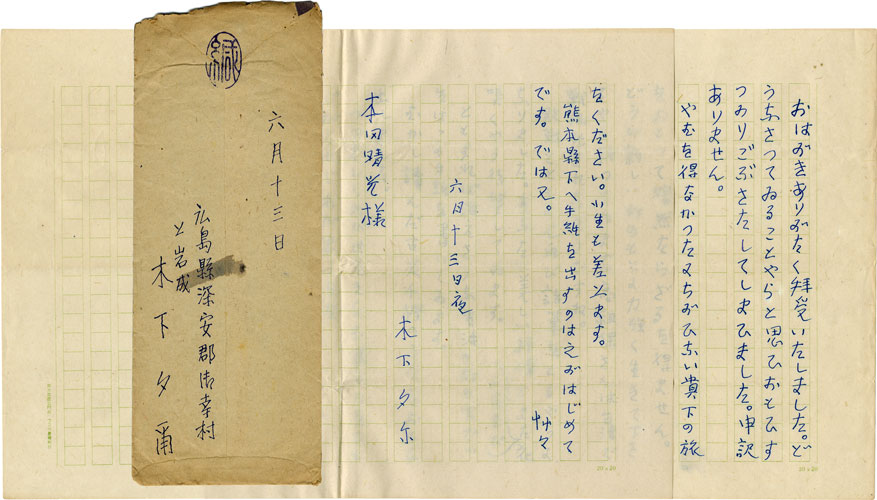 おはがきありがたく拝受いたしました。ど
うなさつてゐることやらと思ひおもひす
つかりごぶさたしてしまひました。申訳
ありません。
やむを得なかつたみちがひない貴下の旅
をください。小生も差上ます。
熊本縣下へ手紙を出すのは之がはじめて
です。では又。
艸々
六月十三日夜
木下夕尓
本田晴光様
六月十三日
広島縣深安郡御幸村
上岩成
木下夕爾
緘
20×20
20×20